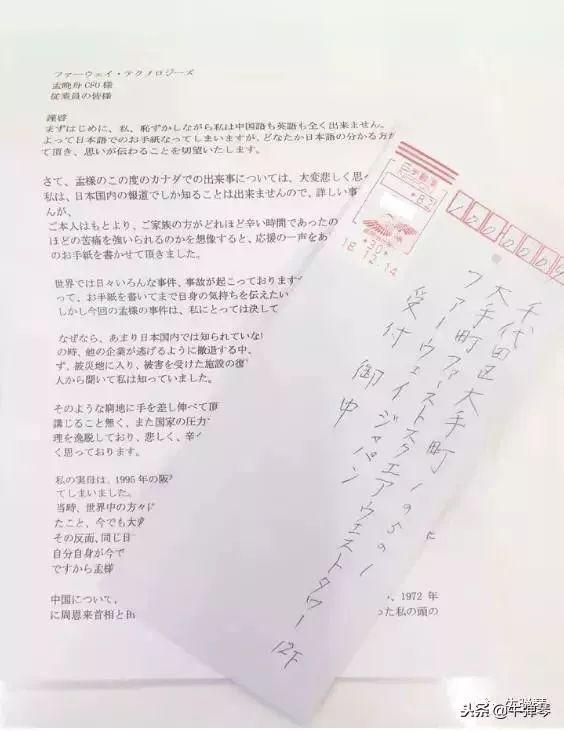 ファーウェイ・テクノロジーズ
孟晩舟 CFO 様
従業員の皆様
謹啓
まずはじめに、私、恥ずかしながら私は中国語も英語も全く出来ません。
よって日本語でのお手紙なってしまいますが、どなたか日本語の分かる方
て頂き、思いが伝わることを切望いたします。
さて、孟様のこの度のカナダでの出来事については、大変悲しく思
私は、日本国内の報道でしか知ることは出来ませんので、詳しい事
んが、
ご本人はもとより、ご家族の方がどれほど辛い時間であったの
ほどの苦痛を強いられるのかを想像すると、応援の一声をあ
のお手紙を書かせて頂きました。
世界では日々いろんな事件、事故が起こっております
って、お手紙を書いてまで自身の気持ちを伝えたい
しかし今回の孟様の事件は、私にとっては決して
なぜなら、あまり日本国内では知られていな
の時、他の企業が逃げるように撤退する中、
ず、被災地に入り、被害を受けた施設の復
人から聞いて私は知っていました。
そのような窮地に手を差し伸べて頂
講じること無く、また国家の圧力
理を逸脱しており、悲しく、辛
く思っております。
私の実母は、1995 年の阪
てしまいました。
当時、世界中の方々に
たこと、今でも大
その反面、同じ日
自分自身が今で
ですから孟様
中国について、
、1972 年
に周恩来首相と
った私の頭の
82
18.12.14
千代田区大手町1-5-1
大手町ファーストスクエアウェストタワー12F
ファーウェイジャパン
受付 御中
头条@牛弹琴